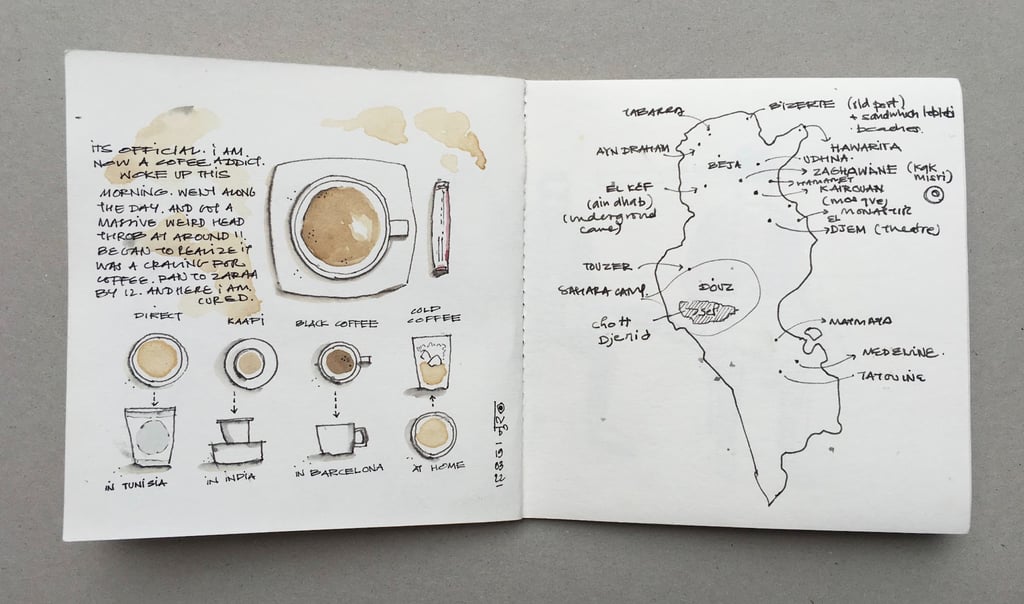 ITS OFFICIAL. I AM.
NOW A COFEE ADDICT.
WOKE UP THIS
MORNING. WENT ALONG
THE DAY. AND GOT A
MASSIVE WEIRD HEAD
THROB AT AROUND 11.
BEGAN TO REALIZE IT
WAS A CRAVING FOR
COFFEE. RAN TO ZARAA
BY 12. AND HERE I AM.
CURED.
DIRECT
KAAPI
BLACK COFFEE
COLD
COFFEE
IN TUNISIA
IN INDIA
IN BARCELONA
AT HOME
TABARRA
BIZERTE (old port)
+ sandwich leblebi
beaches.
AYN DRAHAM
HAWARITA
BEJA
UDHNA.
ZAGHAWANE (Kak
misri)
HAMAMET
KAIROUAN
(mosque)
EL KEF
(ain dhab)
(underground
cave)
MONASTIR
EL
DJEM (theatre)
TOUZER
DOUZ
SAHARA CAMP.
Chott
Djerid
MATMATA
MEDENINE.
TATOUINE